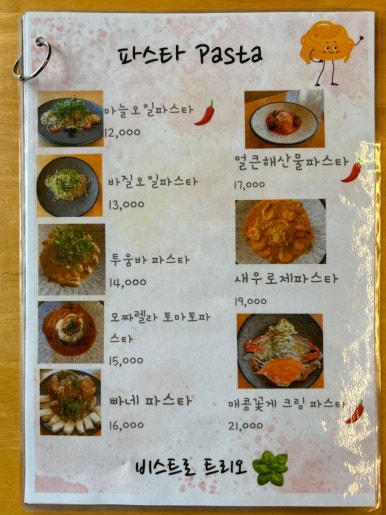 파스타 Pasta
마늘오일파스타
12,000
바질오일파스타
13,000
투움바 파스타
14,000
모짜렐라 토마토파
스타
15,000
빠네 파스타
16,000
얼큰해산물파스타
17,000
새우로제파스타
19,000
매콤꽃게 크림 파스타
21,000
비스트로 트리오